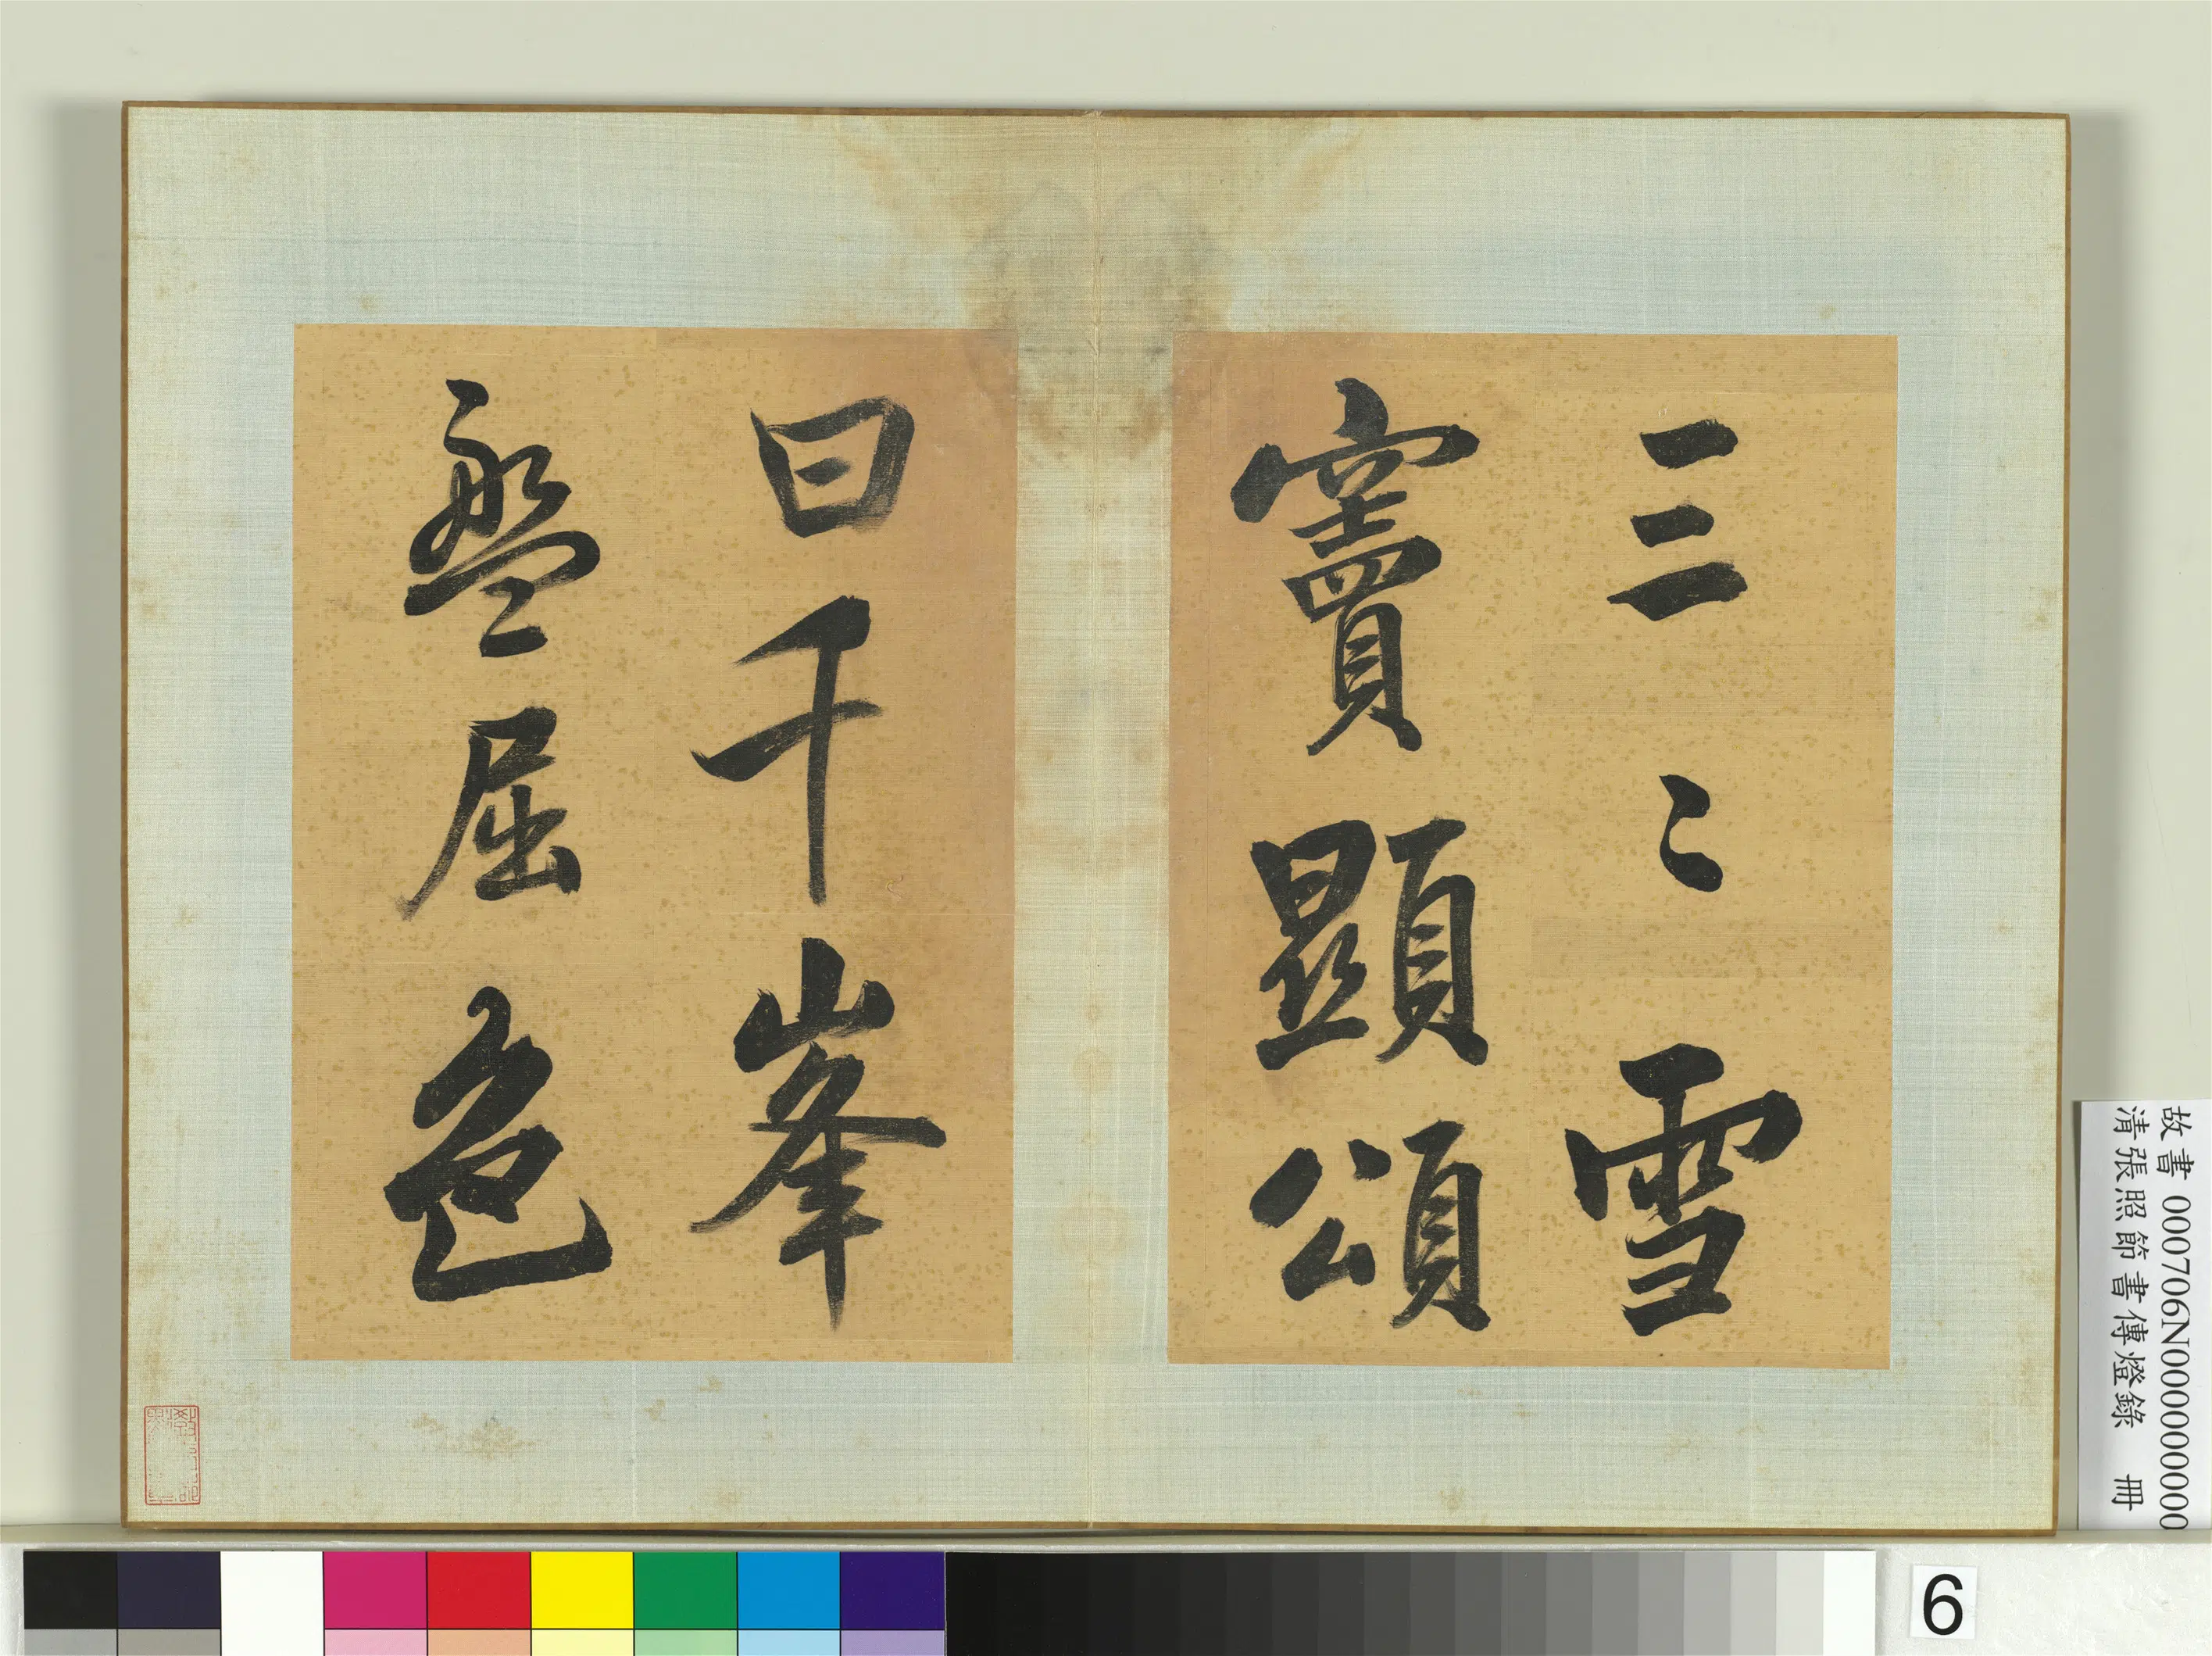 三三〻雪
竇顯頌
曰千峯
盤屈色
故書 000706N000000000
清張照節書傳燈錄 冊
6